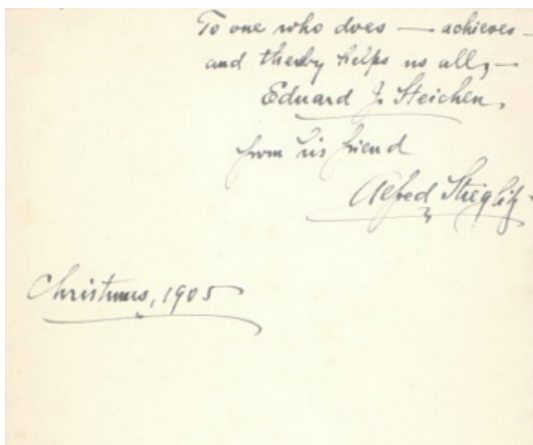 To one who does — achieves —
and thereby helps us all, —
Eduard J. Steichen,
from his friend
Alfred Stieglitz
Christmas, 1905